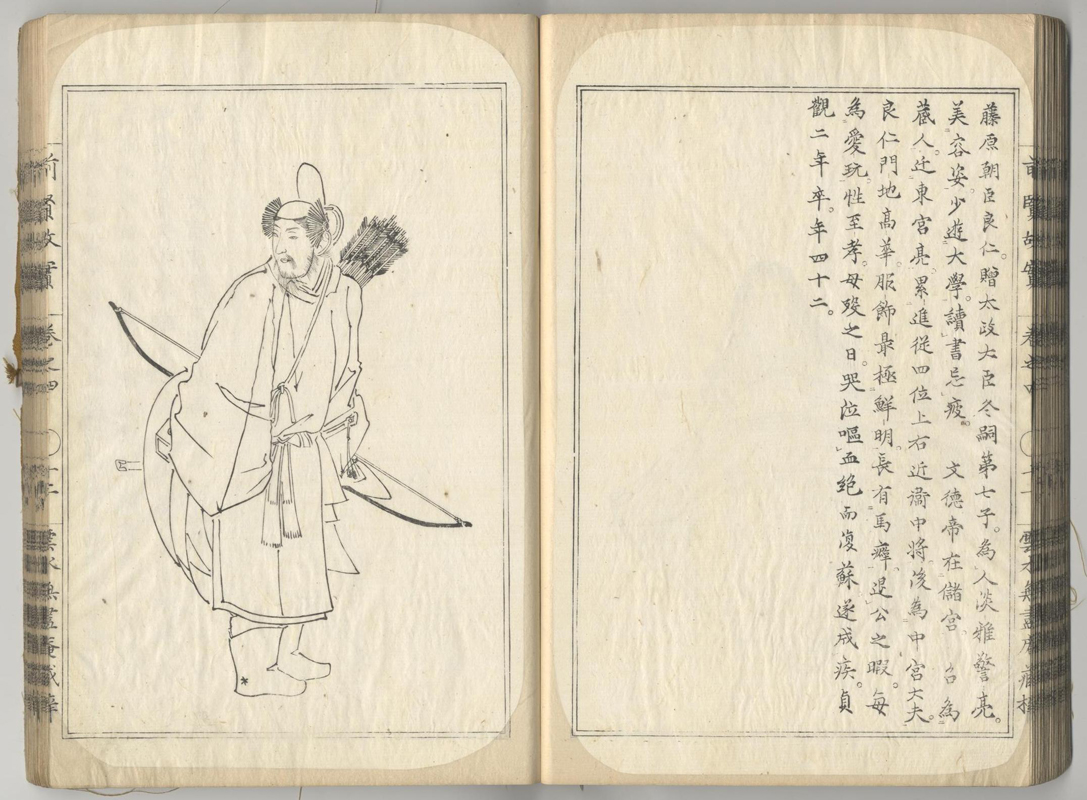 藤原朝臣良仁。贈太政大臣冬嗣第七子。為人淡雅警亮。
美容姿。少遊大學。讀書忘疲。文德帝在儲宮。召為
藏人。遷東宮亮。累進從四位上右近衛中將。後為中宮大夫。
良仁門地高華。服飾最極鮮明。長有馬癖。退公之暇。每
為愛玩。性至孝。母歿之日。哭泣嘔血。絶而復蘇。遂成疾。貞
觀二年卒。年四十二。
前賢故實 卷之四 雲水無盡庵藏梓